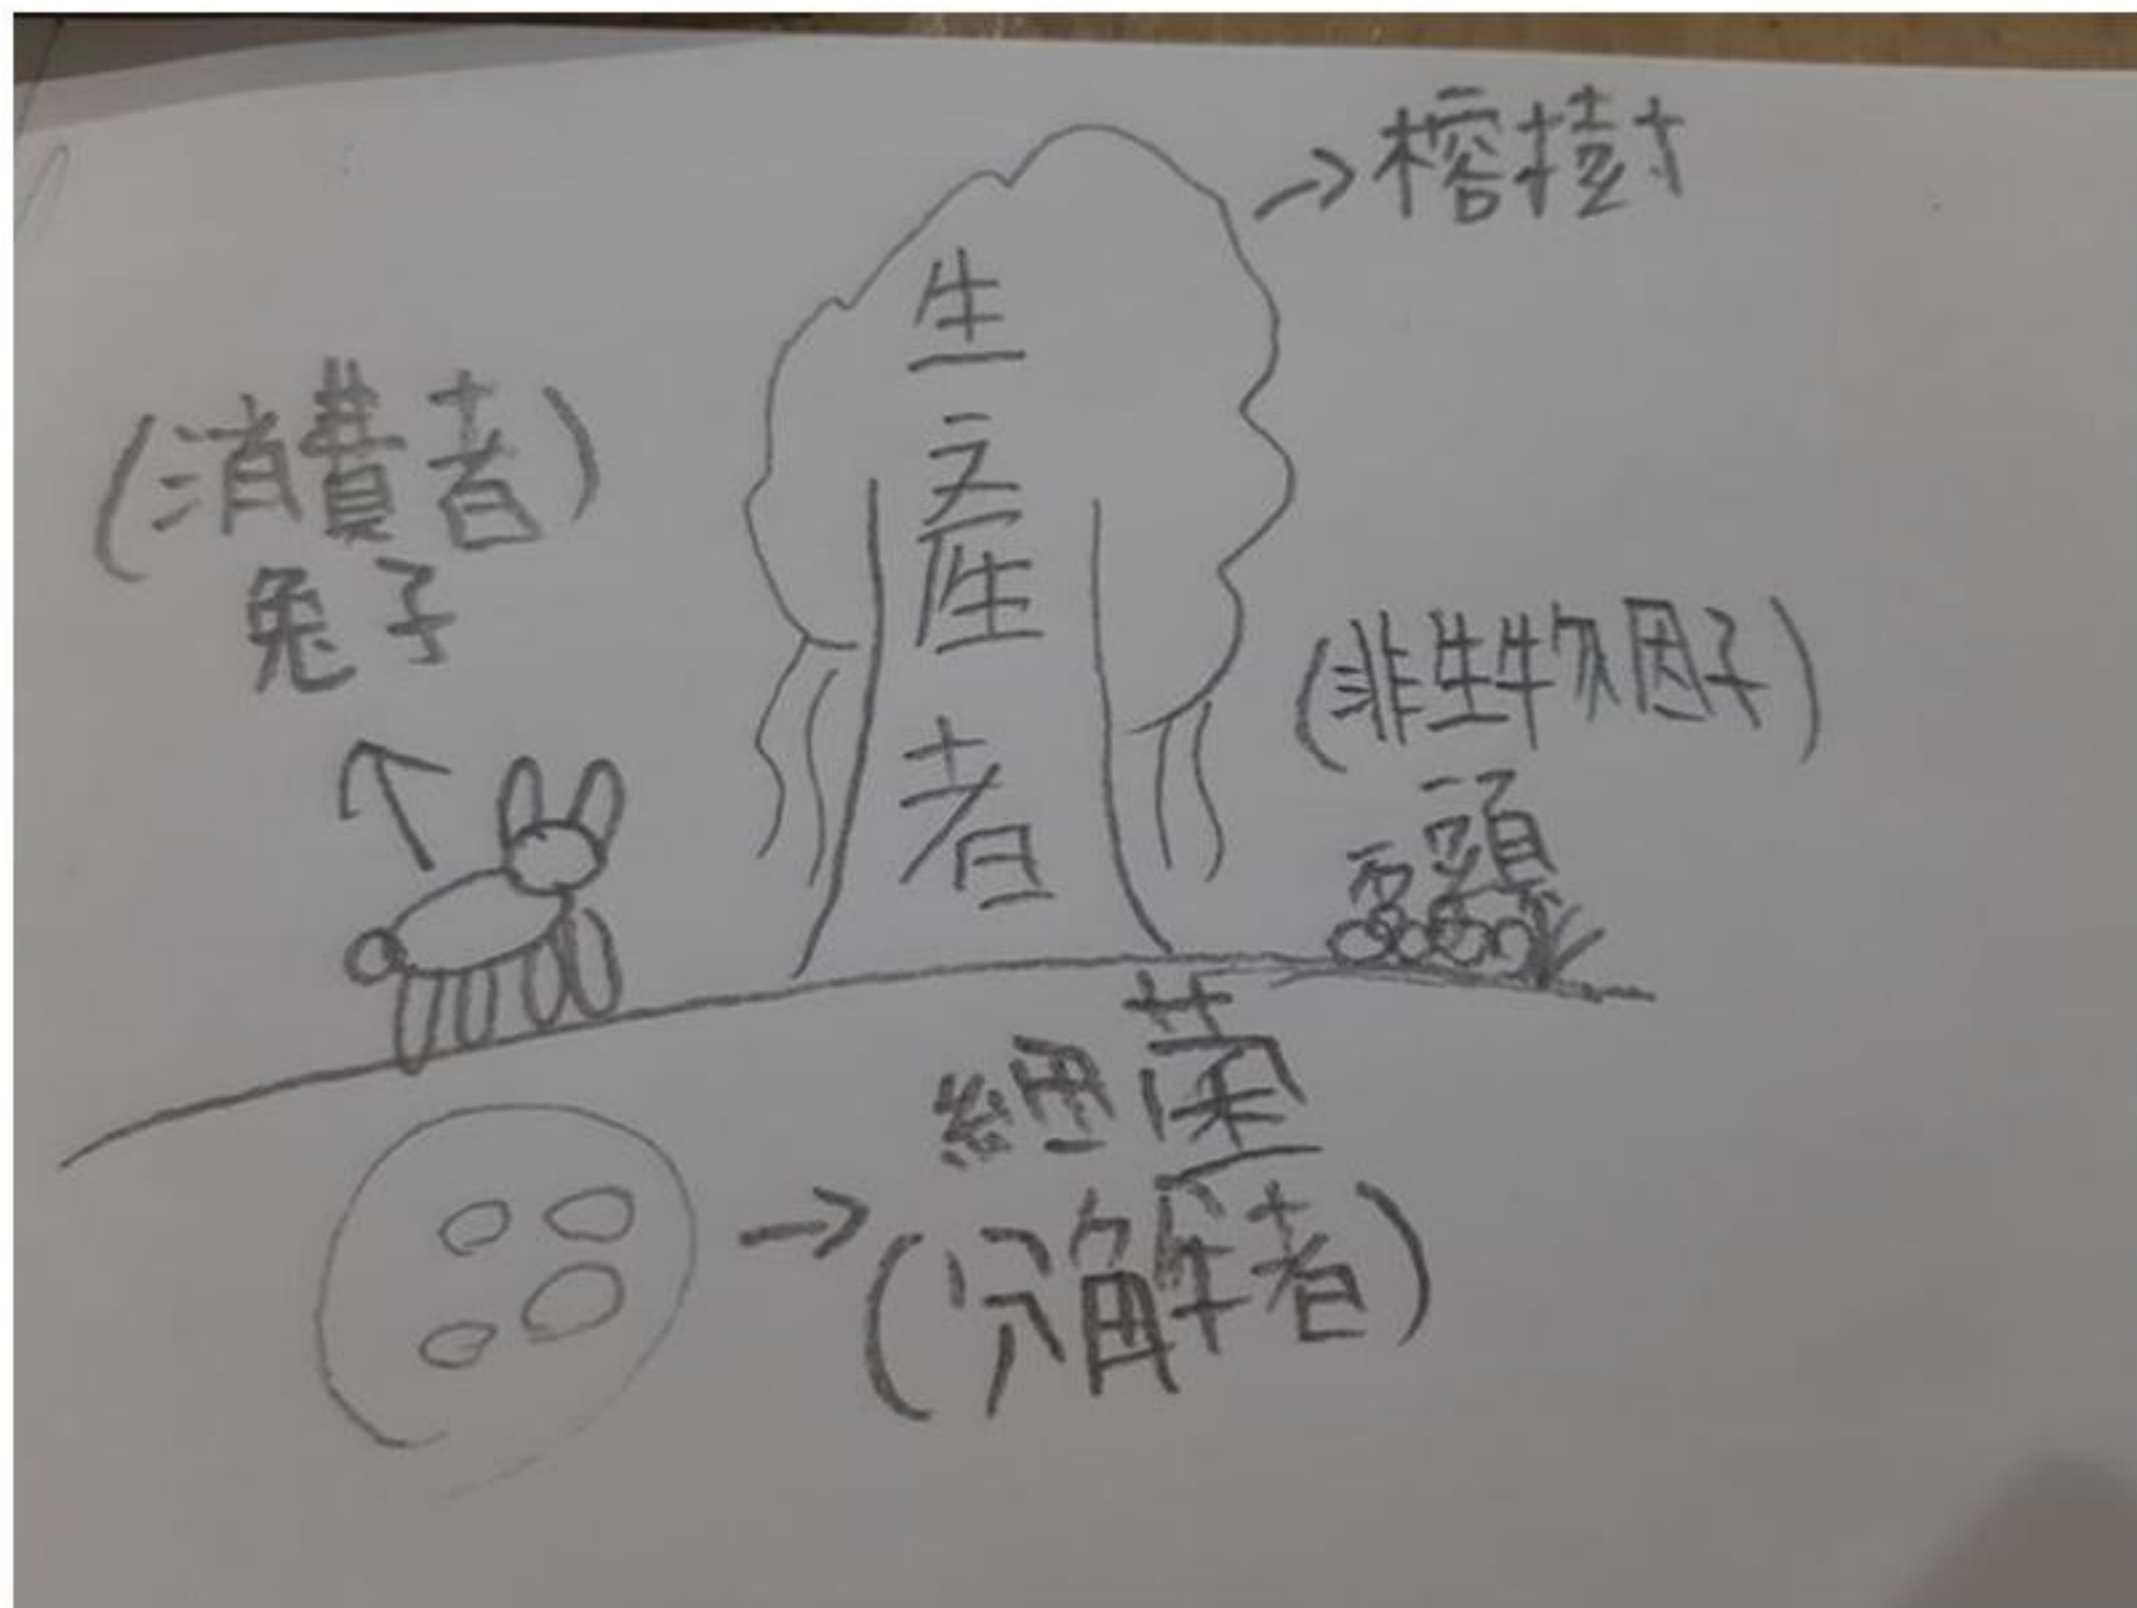 →榕樹
生產者
(消費者)
兔子
(非生物因子)
石頭
→細菌
(分解者)